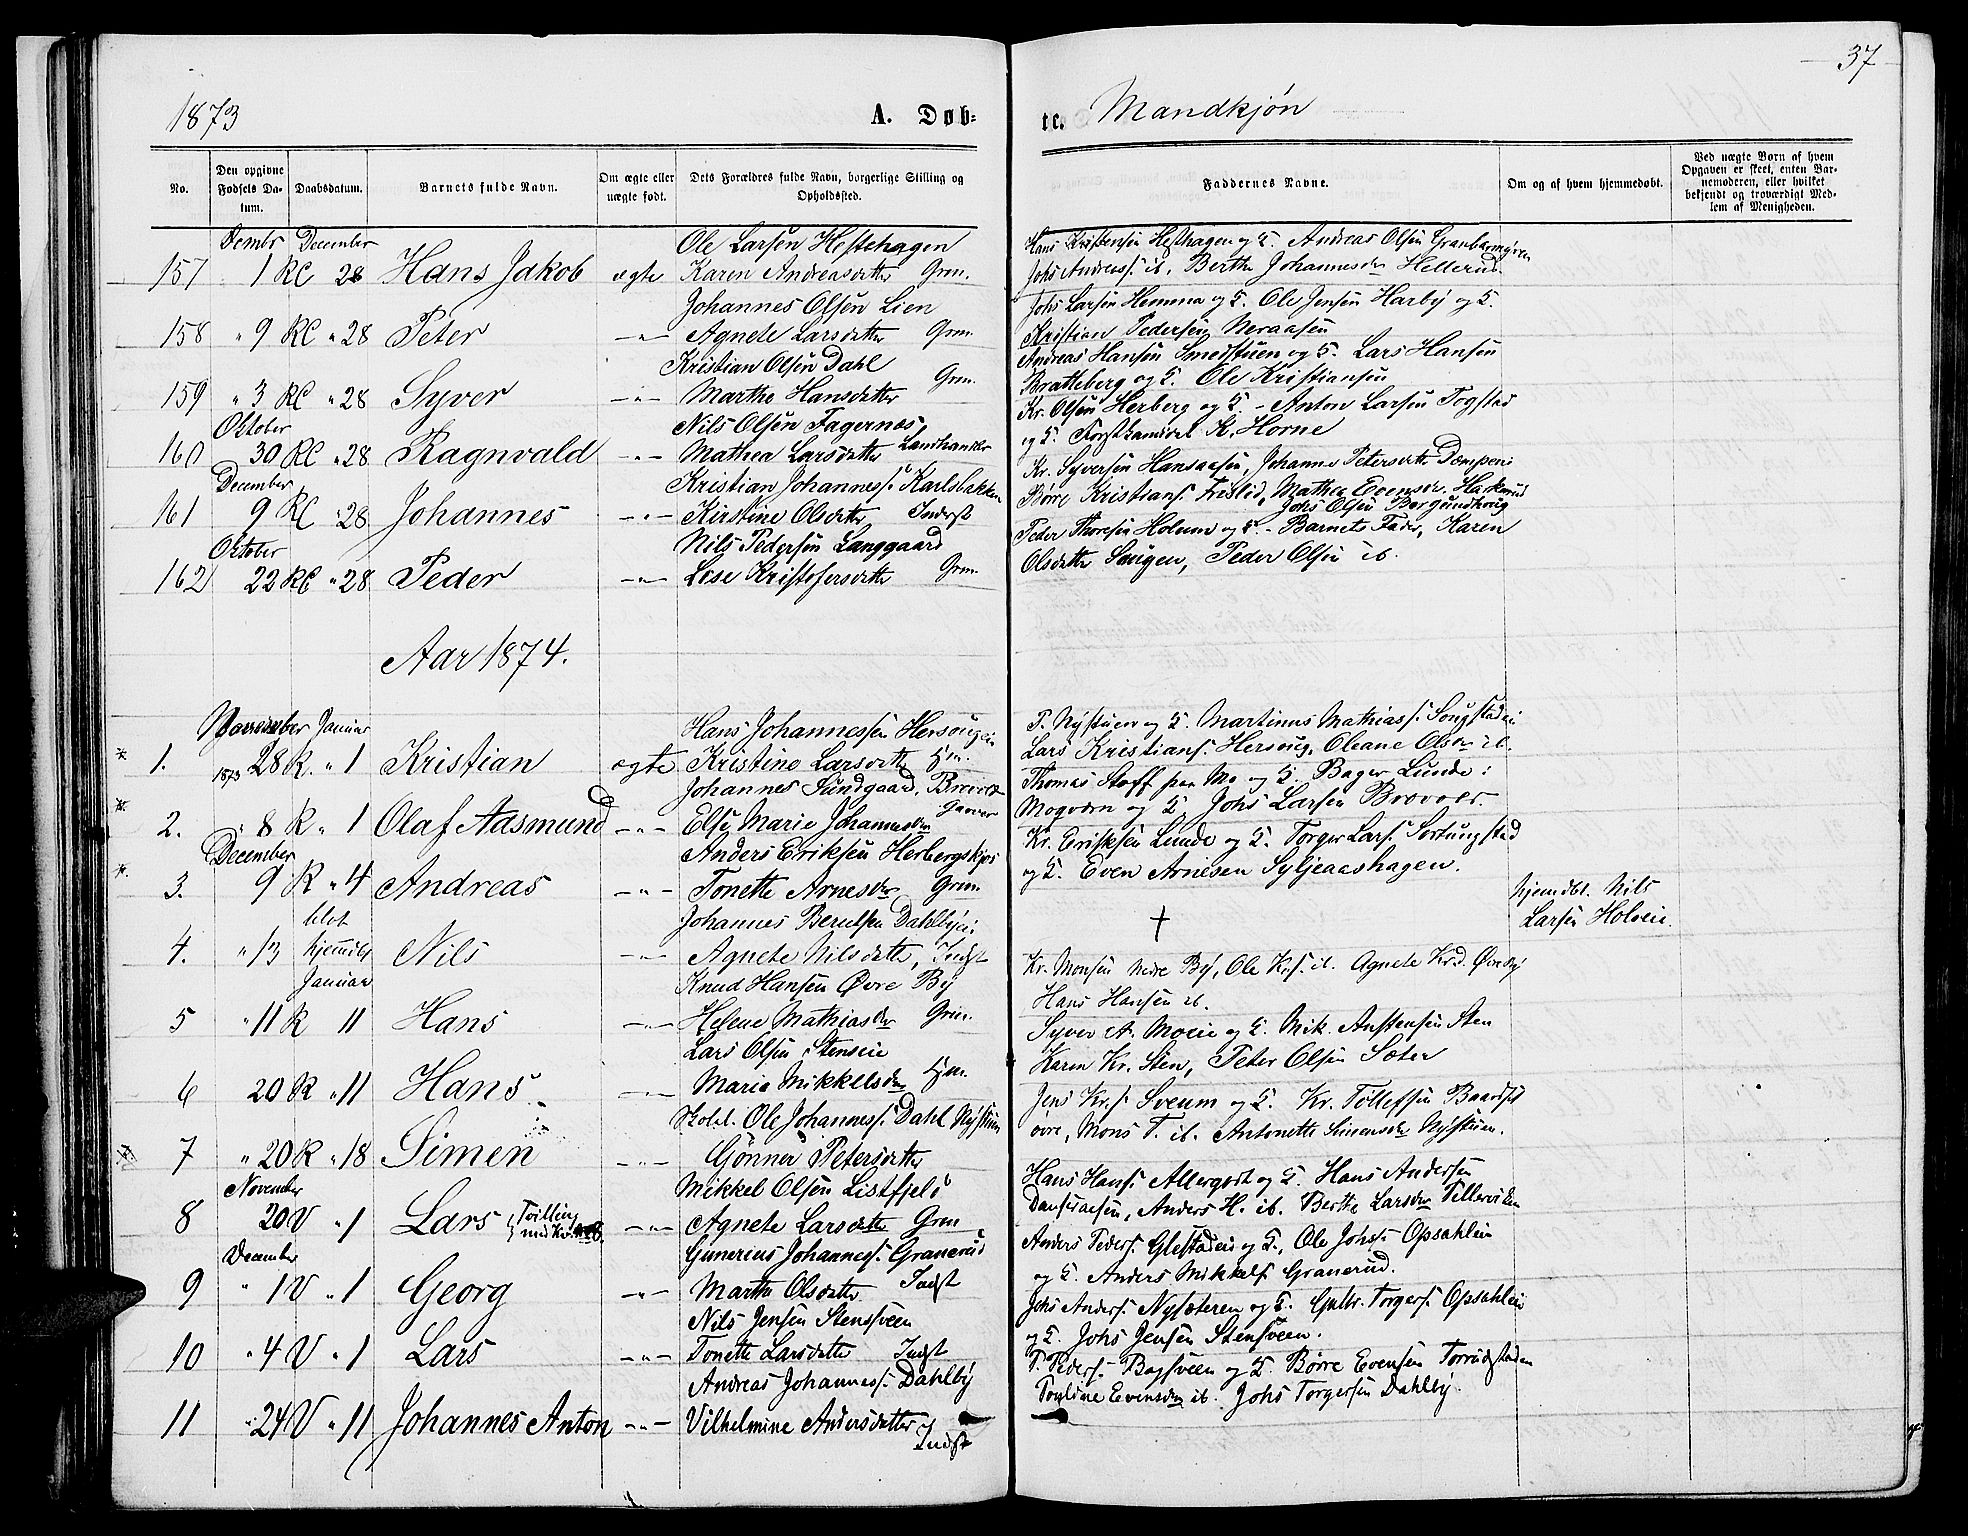 37
1873
A. Døb-
te.
Mandkjøn
No.
Den opgivne Fødsels Datum.
Daabsdatum.
Barnets fulde Navn.
Om ægte eller uægte født.
Dets Forældres fulde Navn, borgerlige Stilling og Opholdssted.
Faddernes Navne.
Om og af hvem hjemmedøbt.
Ved uægte Børn af hvem Opgaven er skeet, enten Barnemoderen, eller hvilket bekjendt og troværdigt Medlem af Menigheden.
Dembr December
Ole Larsen Hestehagen
Hans Kristensen Hesthagen og H. Andreas Olsen
157 1 RC 28 Hans Jakob ægte Karen Andreasdatter Grm.
Johs Andreass. ib. Berthe Johannesdr Hellerud
Johannes Olsen Lien
Johs Larsen Hemma og H. Ole Jensen Harby og H.
158 " 9 RC " 28 Peter -"- Agnete Larsdatter Grm.
Kristian Pedersen Neraasen
Kristian Olsen Dahl
Andreas Hansen Smedstuen og H. Lars Hansen
159 " 3 RC " 28 Syver -"- Marthe Hansdatter Grm.
Bratteberg og H. Ole Kristiansen
Oktober
Nils Olsen Fagernæs
Kr. Olsen Herberg og H. - Anton Larsen Togstad
160 30 RC " 28 Ragnvald -"- Mathea Larsdatter Landhandler
og H. Forstkandidat K. Horne
December
Kristian Johanness. Karlsbakken
Kr. Syversen Hansaasen, Johanne Petersdtr
161 9 RC " 28 Johannes -"- Kirstine Olsdatter Inderst
Børre Kristians. Frislid, Mathea Evensdr.
Johs Olsen
Oktober
Nils Pedersen Langgaard
Peter Thoresen Holum og H. - Barnets Fader, Karen
162 22 RC " 28 Peder -"- Lise Kristofersdatter Grm.
Olsdatter Haugen, Peder Olsen ib.
Aar 1874.
November Januar
Hans Johannessen
P. Nystuen og H. Martinus Mathiass.
1. 1873 28 R. " 1 Kristian ægte Kristine Larsdatter
Lars Kristians. Hersoug, Oleane Olsdr ib.
Johannes Sundgaard,
Thomas Stoff paa Mo og H. Bager Lunde:
2. " 8 R " 1 Olaf Aasmund -"- Else Marie Johannesdr
og H Johs Larsen
December
Anders Eriksen
Kr. Eriksen Lunde og H. Torger Lars. Sørlungstad
3. 9 R " 4 Andreas -"- Tonette Arnesdr Grm.
og H. Even Arnesen Syljeaashagen.
hjemdbt. Nils
blot
Johannes Berntsen
†
Larsen Holveie.
4. " 13 hjemdbt Nils -"- Agnete Nilsdatter, Indst
Januar
Knud Hansen Øvre By
Kr. Monsen nedre By, Ole Krs. ib. Agnete Kr.d. Øvre By
5 " 11 R 11 Hans -"- Helene Mathiasdr Grm.
Hans Hansen ib.
Lars Olsen Stenseie
Syver A. Moeie og H. Mik. Anstensen Sten
6 20 R " 11 Hans -"- Marie Mikkelsdr
Karen Kr. Sten, Peter Olsen Sæter
Skolel. Ole Johanness. Dahl Nystuen
Jens Kr.s. Sveum og H. Kr. Tollefsen
7 " 20 R " 18 Simen -"- Gønner Petersdatter
øvre, Mons T. ib. Antonette Simensdr Nystuen.
November
Mikkel Olsen Listfjeld
Hans Hans. Allergodt og H. Hans Andersen
8 20 V " 1 Lars Tvilling med Kv. -"- Agnete Larsdatter Grm
Anders H. ib. Berthe Larsdr
December
Gunerius Johanness. Granerud
Anders Peders. og H., Ole Johs. Opsahleie
9 " 1 V " 1 Georg -"- Marthe Olsdatter Indst
og H. Anders Mikkels. Granerud.
Nils Jensen Stensveen
Johs Anders. Nysæteren og H. Gulbr. Torgers. Opsahleie
10 " 4 V " 1 Lars -"- Tonette Larsdatter Indst
og H. Johs Jensen Stensveen.
Andreas Johanness. Dahlby
P. Peders. Bagsveen og H Børre Evensen
11 " 24 V " 11 Johannes Anton -"- Vilhelmine Andersdatter Indst
Evensdr ib. Johs Torgersen Dahlby.